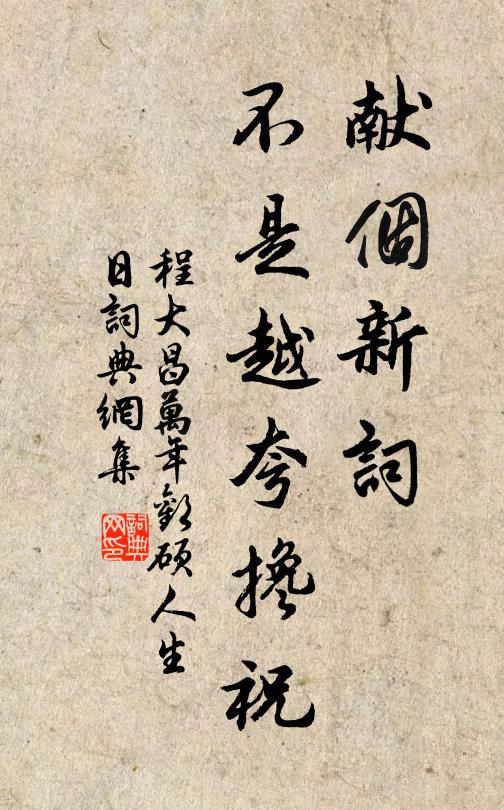 献個新詞
不是越夸搀祝
程大昌萬年歡碩人生
日詞典網集
詞典
网印